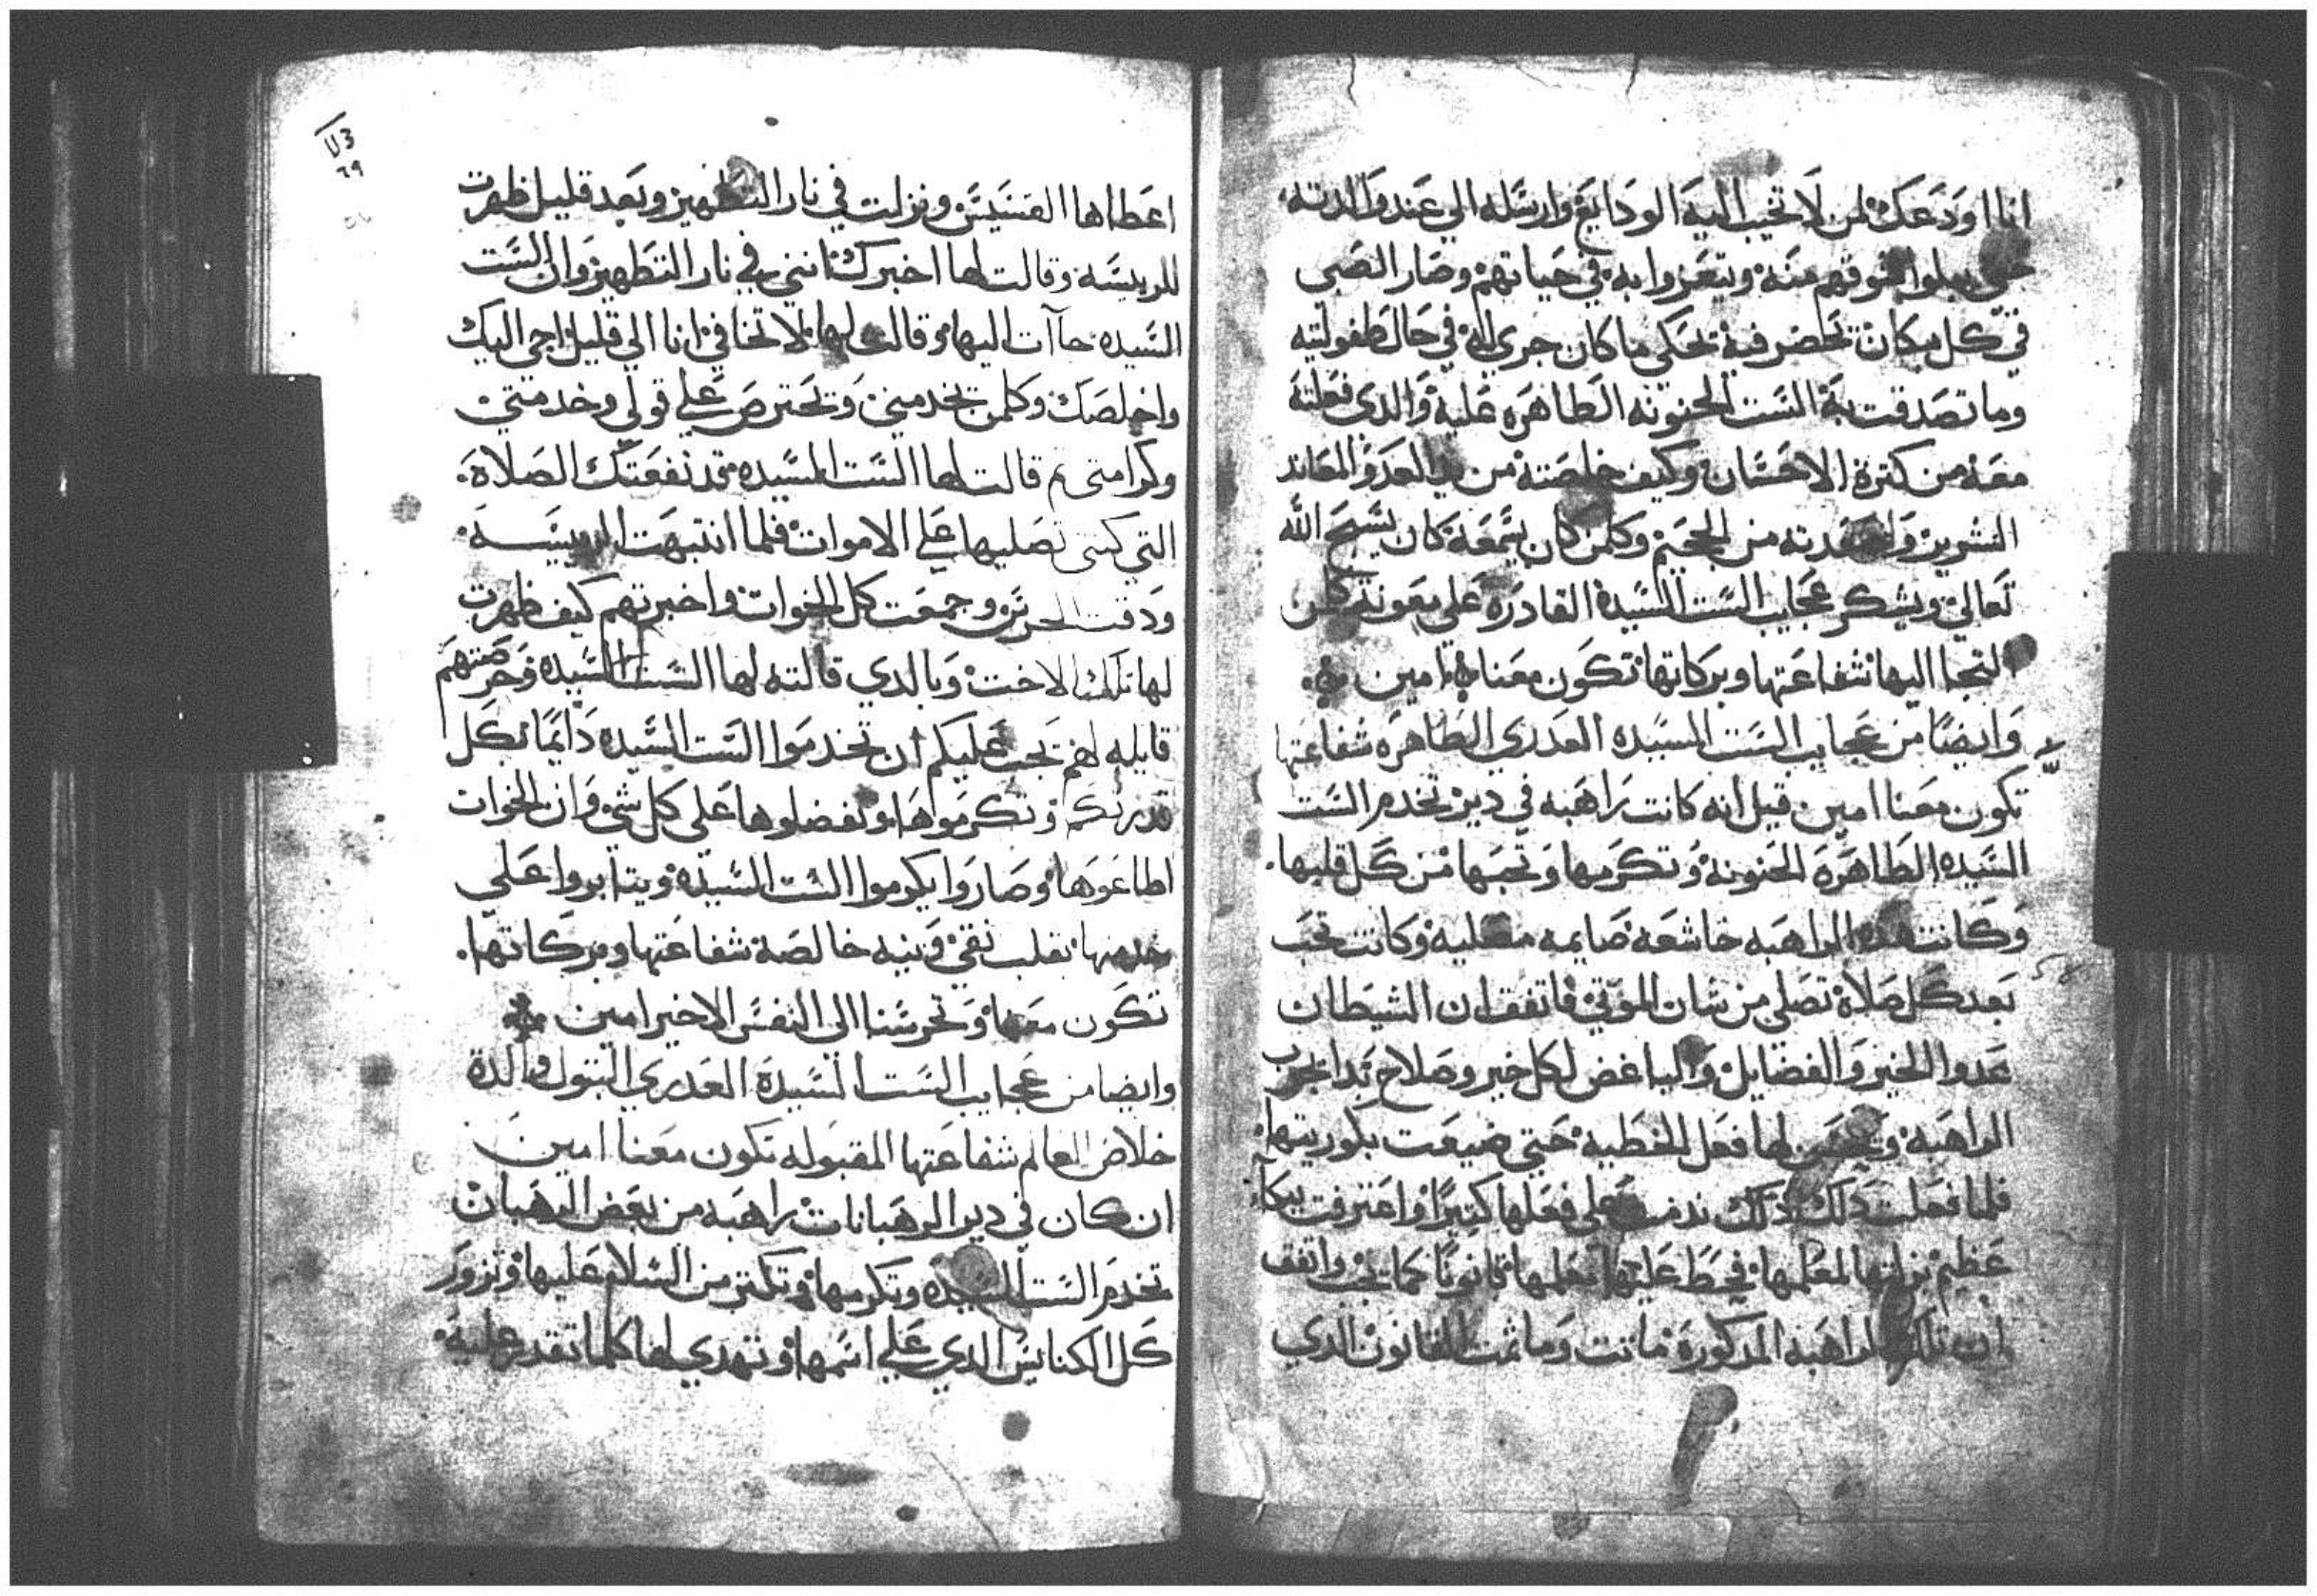 انا اودعك لمن لا تخيب اليه الودايع وارسله الي عند والدته
حتي يبلوا شوقهم منه ويتعزوا به في حياتهم وصار الصبي
في كل مكان تحضر فيه تحكي ما كان جري له في حال طفوليته
وما تصدقت به الست الحنونه الطاهره عليه والدي فعلته
معه من كترة الاحسان وكيف خلصته من يد العدو المعاند
الشرير من الجحيم وكلمن كان يسمعه كان يسبح الله
تعالي ويشكر عجايب الست السيدة القادره علي معونة كلمن
التجا اليها شفاعتها وبركاتها تكون معنا امين
وايضا من عجايب الست السيده العدري الطاهره شفاعتها
تكون معنا امين قيل انه كانت راهبه في دير تخدم الست
السيده الطاهره الحنونه وتكرمها وتحبها من كل قلبها
وكانت هده الراهبه خاشعه صايمه مصليه وكانت تحب
بعد كل صلاة تصلي من شان الموتي فاتفق ان الشيطان
عدوا الخير والفضايل والباغض لكل خير وصلاح بدا يجرب
الراهبه ويحسن لها فعل الخطيه حتي ضيعت بكوريتها
فلما فعلت دلك دلك ندمت علي فعلها كتيرا واعترفت ببكاء
عظيم بزلتها لمعلمها فحط عليها معلمها قانونا كما يجب واتفق
ان تلك الراهبه المدكورة ماتت وما تمت القانون الدي
٦٩
اعطاها القسيس ونزلت في نار التطهير وبعد قليل ظهرت
للريسه وقالت لها اخبرك انني في نار التطهير وان الست
السيده جاآت اليها وقالت لها لا تخافي انا الي قليل اجي اليك
واخلصك وكلمن يخدمني ويحترص علي قولي وخدمتي
وكرامتي تم قالت لها الست السيده قد نفعتك الصلاة
التي كنتي تصليها علي الاموات فلما انتبهت الريسه
ودقت الحرس وجمعت كل الخوات واخبرتهم كيف ظهرت
لها تلك الاخت وبالدي قالته لها الست السيده وحرصتهم
قايله لهم يجب عليكم ان تخدموا الست السيده دايما بكل
قدرتكم وتكرموها وتفضلوها علي كل شي وان الخوات
اطاعوها وصاروا يكرموا الست السيده ويتابروا علي
خدمتها بقلب نقي ونيه خالصه شفاعتها وبركاتها
تكون معنا وتحرسنا الي النفس الاخير امين
وايضا من عجايب الست السيدة العدري البتول والدة
خلاص العالم شفاعتها المقبوله تكون معنا امين
ان كان في دير الرهبانات راهبه من بعض الرهبان
تخدم الست السيده وتكرمها وتكتر من السلام عليها وتزور
كل الكنايس الدي علي اسمها وتهدي لها كلما تقدر عليه